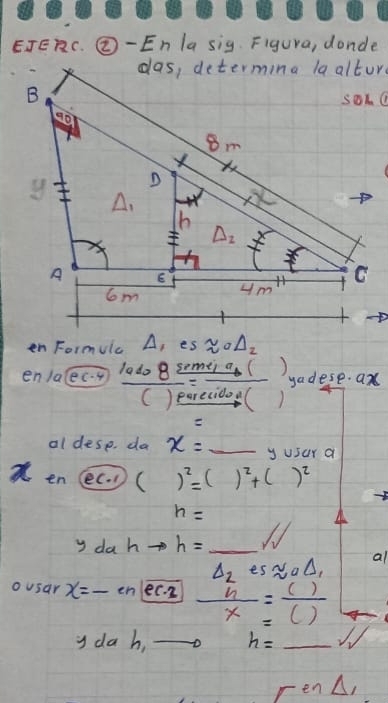 EJERC. ② - En la sig. Figura, donde
das, determina la altur
SOL ①
B
90
8 m
D
x
y
Δ₁
h
Δ₂
A
E
C
6m
4m
en Formula Δ₁ es ≈ a Δ₂
en la ec.4 lado 8 / ( ) = semej a ( ) / parecido a ( ) y a desp. a x
=
al desp. da x = ___ y usar a
x en ec.1 ( )² = ( )² + ( )²
h =
y da h → h = ___ √√
al
Δ₂ es ≈ a Δ₁
o usar x = — en ec.2 h / x = ( ) / ( )
=
y da h, → h = ___ √√
en Δ₁